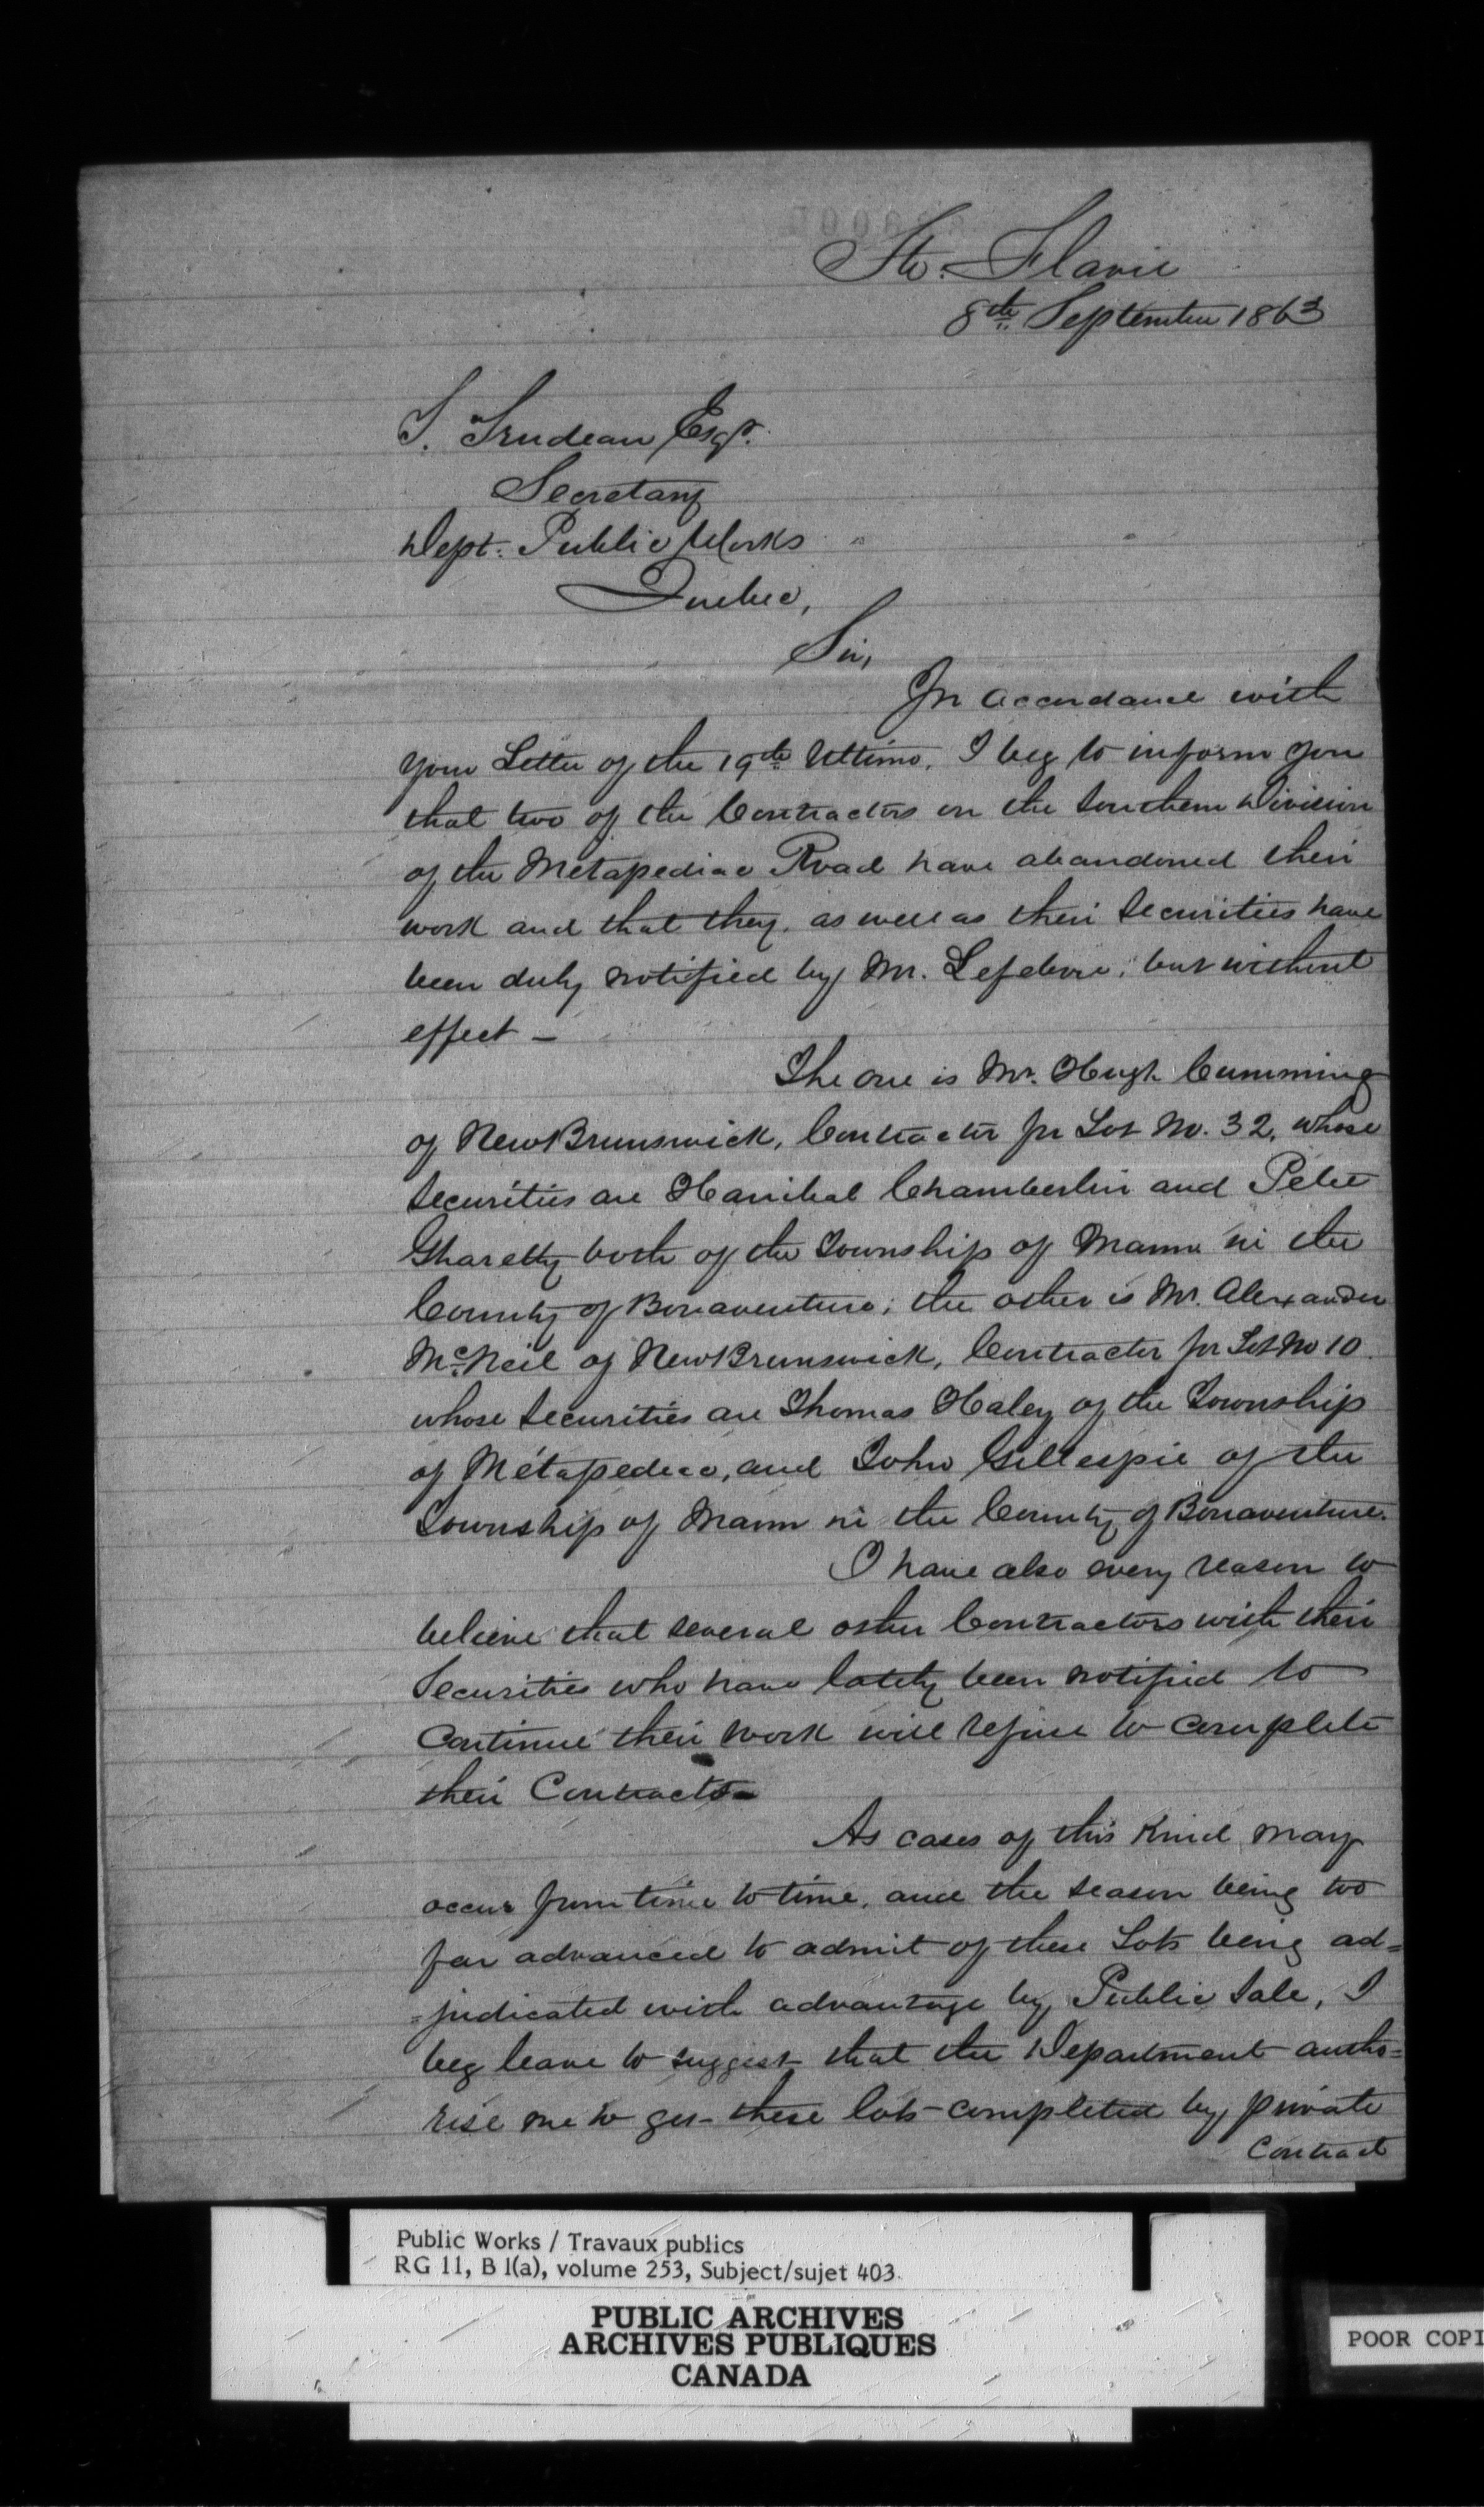 Ste. Flavie
8th September 1863
T. Trudeau Esqr.
Secretary
Dept. Public Works
Quebec,
Sir,
In accordance with
your Letter of the 19th Ultimo, I beg to inform you
that two of the Contractors on the Southern Division
of the Métapediac Road have abandoned their
work and that they, as well as their Securities have
been duly notified by Mr. Lefebvre, but without
effect —
The one is Mr. Hugh Cumming
of New Brunswick, Contractor for Lot No. 32, whose
Securities are Hanibal Chamberlin and Peter
both of the Township of Mann in the
County of Bonaventure; the other is Mr. Alexander
McNeil of New Brunswick, Contractor for Lot No 10
whose Securities are Thomas Haley of the Township
of Métapediac, and John Gillespie of the
Township of Mann in the County of Bonaventure.
I have also every reason to
believe that several other Contractors with their
Securities who have lately been notified to
Continue their work will refuse to complete
their Contracts —
As cases of this Kind may
occur from time to time, and the season being too
far advanced to admit of these Lots being ad=
=judicated with advantage by Public Sale, I
beg leave to suggest that the Department autho=
rise me to get these lots completed by private
Contract
Public Works / Travaux publics
RG 11, B 1(a), volume 253, Subject/sujet 403
PUBLIC ARCHIVES
ARCHIVES PUBLIQUES
CANADA
POOR COPI